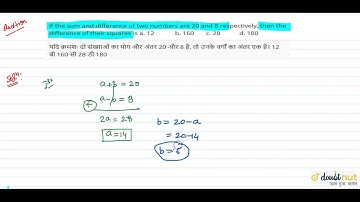 Question
If the sum and difference of two numbers are 20 and 8 respectively, then the
difference of their squares is a. 12 b. 160 c. 28 d. 180
यदि क्रमशः दो संख्याओं का योग और अंतर 20 और 8 है, तो उनके वर्गों का अंतर एक है। 12
बी 160 सी 28 डी 180
Soln.
a+b = 20
a-b = 8
2a = 28
a=14
b = 20-a
= 20-14
b = 6
doubtnut